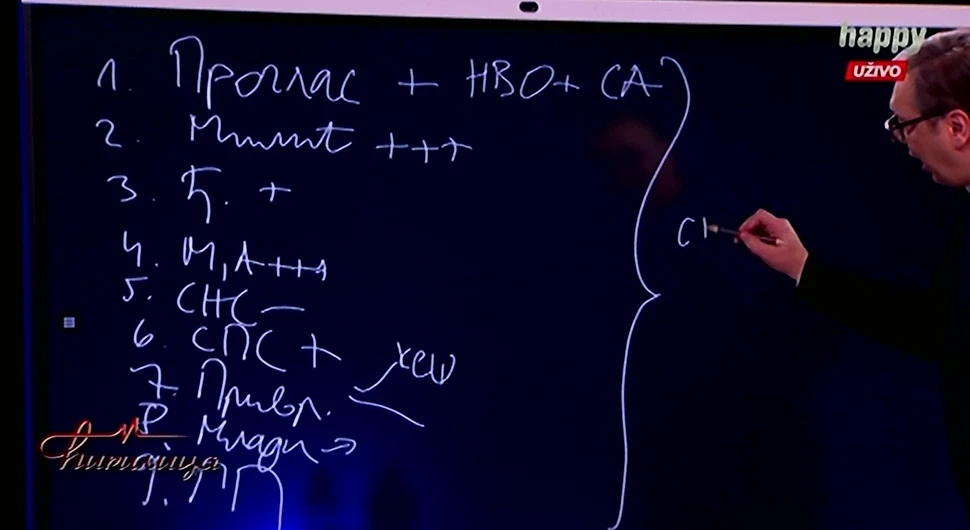 happy
UŽIVO
1. Проглас + НВО + СА
2. Милит +++
3. Ђ. +
4. М, А +++
5. СНС –
6. СПС +
7. Привр. хеш
8. Млади →
9. ПГ
Ћирилица